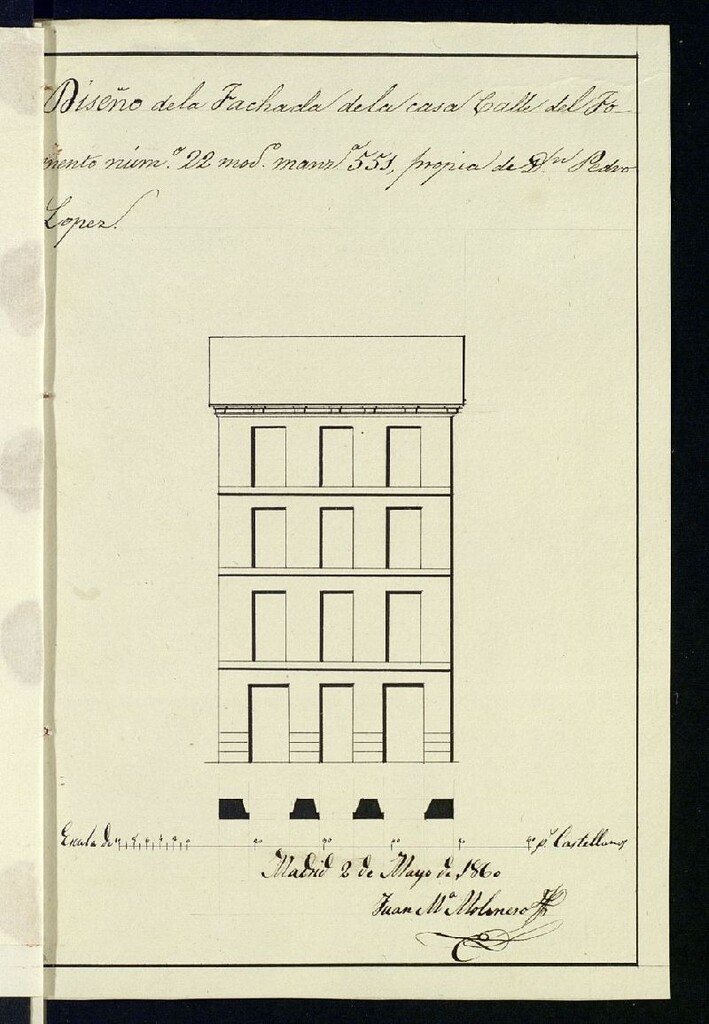 Diseño de la Fachada de la casa Calle del Fo-
mento núm.º 22 mod.º manz.ª 551, propia de Dⁿ Pedro
Lopez.
Escala de 10 20 30 40 50 p.s Castellanos
Madrid 2 de Mayo de 1860
Juan M.ª Molinero